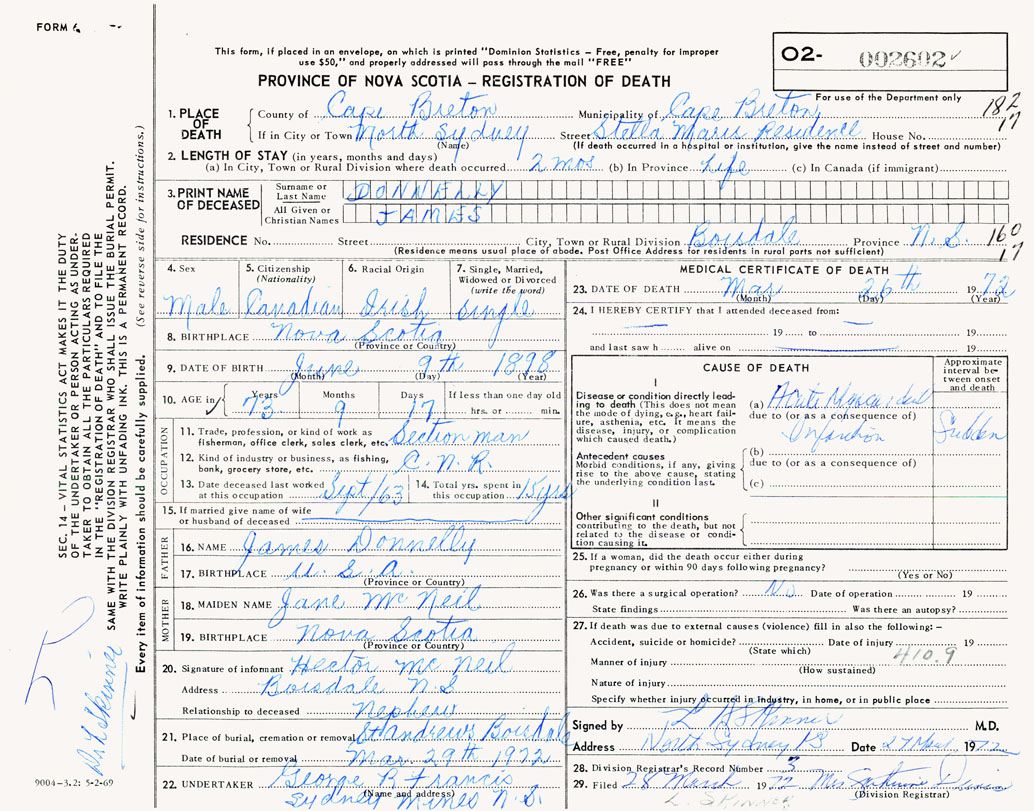 FORM 6
This form, if placed in an envelope, on which is printed "Dominion Statistics – Free, penalty for improper
use $50," and properly addressed will pass through the mail "FREE"
PROVINCE OF NOVA SCOTIA – REGISTRATION OF DEATH
O2- 002602
For use of the Department only
182
17
1. PLACE OF DEATH
County of Cape Breton Municipality of Cape Breton
If in City or Town North Sydney Street Stella Maris Residence House No.
(Name) (If death occurred in a hospital or institution, give the name instead of street and number)
2. LENGTH OF STAY (in years, months and days)
(a) In City, Town or Rural Division where death occurred 2 mos (b) In Province Life (c) In Canada (if immigrant)
3. PRINT NAME OF DECEASED
Surname or Last Name DONNELLY
All Given or Christian Names JAMES
RESIDENCE No. Street City, Town or Rural Division Boisdale Province N.S. 160
(Residence means usual place of abode. Post Office Address for residents in rural parts not sufficient) 17
4. Sex Male
5. Citizenship (Nationality) Canadian
6. Racial Origin Irish
7. Single, Married, Widowed or Divorced (write the word) single
8. BIRTHPLACE Nova Scotia
(Province or Country)
9. DATE OF BIRTH June 9th 1898
(Month) (Day) (Year)
10. AGE in Years 73 Months 9 Days 17 If less than one day old hrs. or min.
OCCUPATION
11. Trade, profession, or kind of work as
fisherman, office clerk, sales clerk, etc. Section man
12. Kind of industry or business, as fishing,
bank, grocery store, etc. C.N.R.
13. Date deceased last worked
at this occupation Sept/63
14. Total yrs. spent in
this occupation 15 yrs
15. If married give name of wife
or husband of deceased
FATHER
16. NAME James Donnelly
17. BIRTHPLACE U.S.A.
(Province or Country)
MOTHER
18. MAIDEN NAME Jane McNeil
19. BIRTHPLACE Nova Scotia
(Province or Country)
20. Signature of informant Hector McNeil
Address Boisdale N.S
Relationship to deceased Nephew
21. Place of burial, cremation or removal St Andrews Boisdale
Date of burial or removal Mar. 29th 1972
22. UNDERTAKER George B Francis
(Name and address)
Sydney Mines N.S.
MEDICAL CERTIFICATE OF DEATH
23. DATE OF DEATH Mar 26th 1972
(Month) (Day) (Year)
24. I HEREBY CERTIFY that I attended deceased from:
19 to 19
and last saw h alive on 19
CAUSE OF DEATH
Approximate interval between onset and death
I
Disease or condition directly leading
to death (This does not mean
the mode of dying, e.g., heart failure,
asthenia, etc. It means the
disease, injury, or complication
which caused death.)
(a) Acute Myocardial
due to (or as a consequence of)
Infarction Sudden
Antecedent causes
Morbid conditions, if any, giving
rise to the above cause, stating
the underlying condition last.
(b)
due to (or as a consequence of)
(c)
II
Other significant conditions
contributing to the death, but not
related to the disease or condition
causing it.
25. If a woman, did the death occur either during
pregnancy or within 90 days following pregnancy?
(Yes or No)
26. Was there a surgical operation? No Date of operation 19
State findings Was there an autopsy?
27. If death was due to external causes (violence) fill in also the following: –
Accident, suicide or homicide? Date of injury 19
(State which) 410.9
Manner of injury
(How sustained)
Nature of injury
Specify whether injury occurred in industry, in home, or in public place
Signed by L B Skinner M.D.
Address North Sydney Date 27 Mar 1972
28. Division Registrar's Record Number 3
29. Filed 28 March 1972 Mrs
(Division Registrar)
L. SKINNER
SEC. 14 – VITAL STATISTICS ACT MAKES IT THE DUTY
OF THE UNDERTAKER OR PERSON ACTING AS UNDER-
TAKER TO OBTAIN ALL THE PARTICULARS REQUIRED
IN THE "REGISTRATION OF DEATH" AND TO FILE THE
SAME WITH THE DIVISION REGISTRAR WHO SHALL ISSUE THE BURIAL PERMIT.
WRITE PLAINLY WITH UNFADING INK. THIS IS A PERMANENT RECORD.
Every item of information should be carefully supplied. (See reverse side for instructions.)
Skinner
9004-3.2: 5-2-69